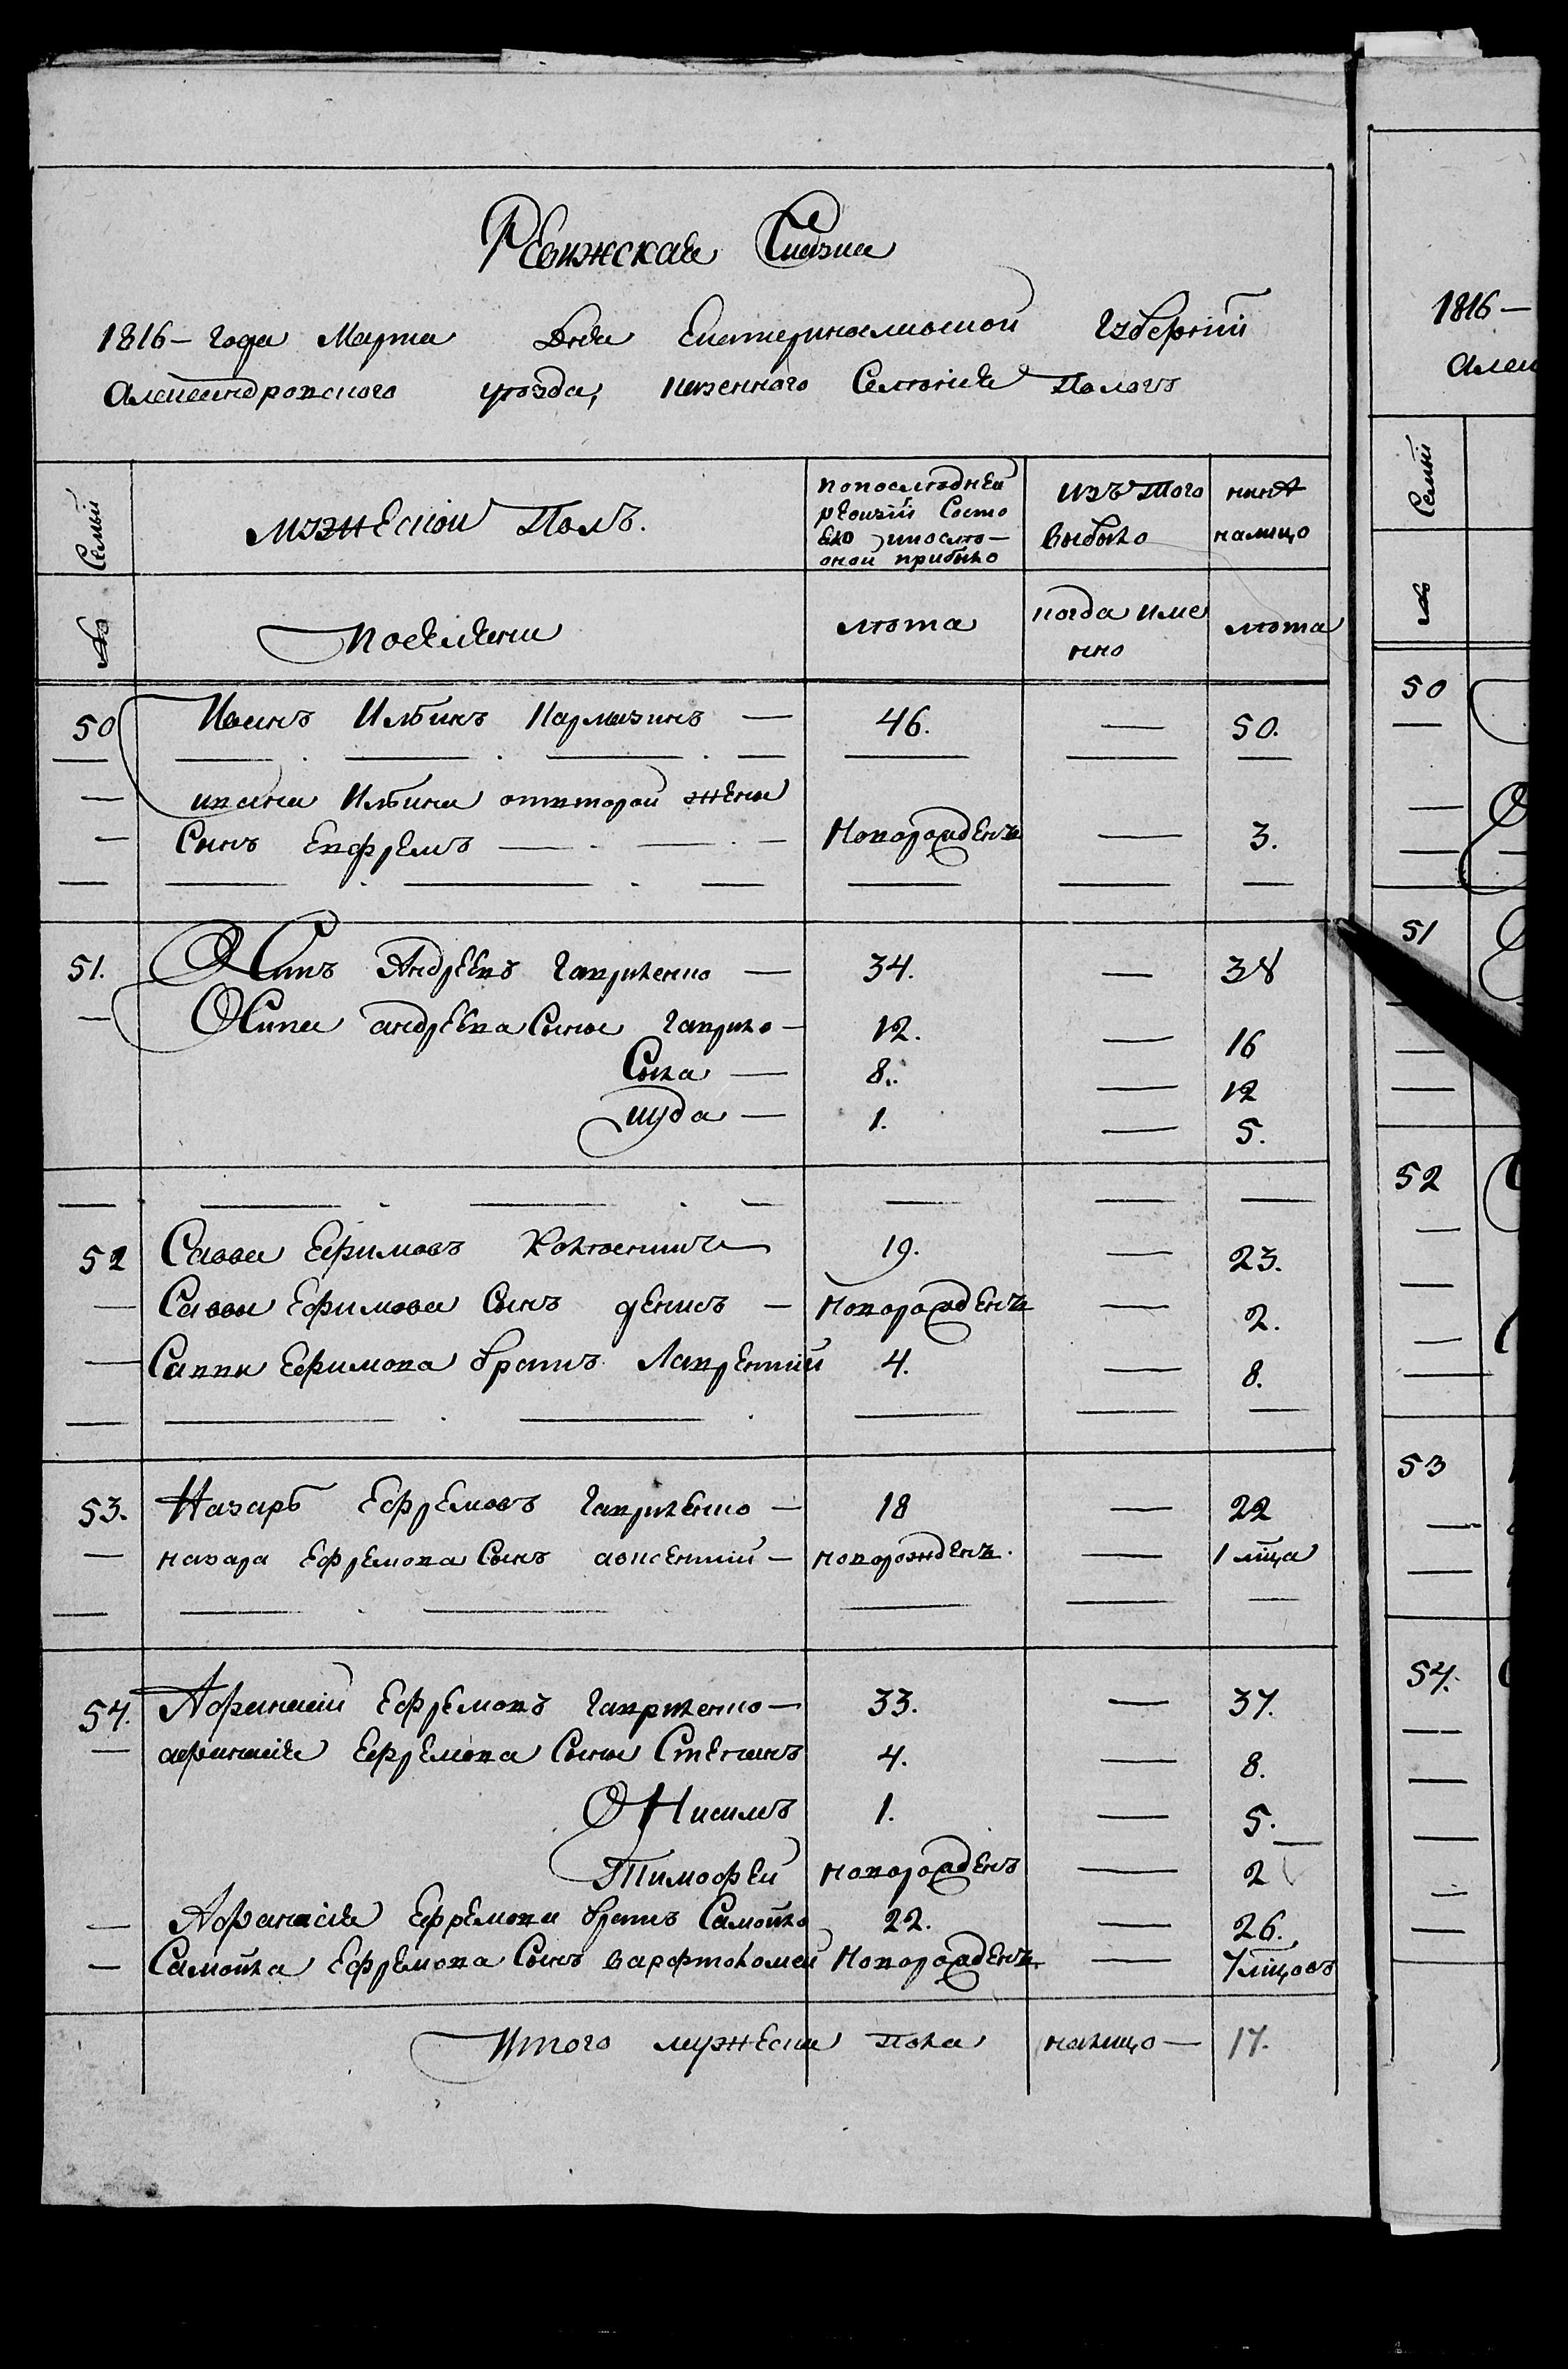 Ревижская Сказка
1816 – года Марта Дня Екатеринославской Губернии
Александровского уѣзда, казенного Селенія Пологъ
Семьи
мужеской Полъ.
попоследней
ревизіи Состо
яло ипосле–
оной прибыло
изъ Того
выбыло
нынѣ
налицо
№
поселяни
лѣта
когда име
нно
лѣта
50 Иванъ Ильинъ Кармазинъ — 46. — 50.
ивана Ильина отвторой жены
Сынъ Евфремъ — Новорожденъ — 3.
51. Осипъ Андреевъ Гавриленко — 34. — 38
Осипа андреева Сыны Гаврило — 12. — 16
Сыла — 8. — 12
иуда — 1. — 5.
52 Савва Ефимовъ — 19. — 23.
Саввы Ефимова Сынъ денисъ — Новорожденъ — 2.
Саввы Ефимова братъ Лаврентий 4. — 8.
53. Назаръ Ефремовъ Гавриленко — 18 — 22
назара Ефремова Сынъ авксентий — новорожденъ. — 1 мца
54. Афанасий Ефремовъ Гавриленко — 33. — 37.
афанасия Ефремова Сыны Степанъ 4. — 8.
Онисимъ 1. — 5.
Тимофей новорожденъ — 2
Афанасия Ефремова братъ Самойло 22. — 26.
Самойла Ефремова Сынъ варфтоломей Новорожденъ. — 7 мцовъ
Итого мужеска пола налицо — 17.
1816 –
Алек
Семьи
№
50
51
52
53
54.